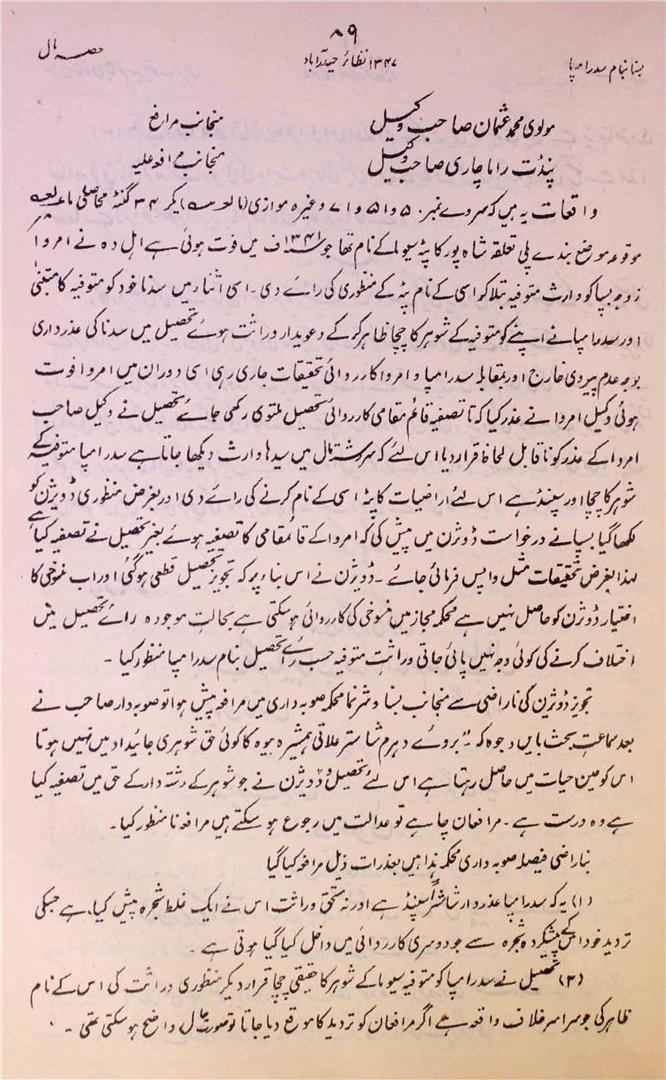 ۸۹
بسنا بنام سدرامپا ۱۳۴۷ نظائر حیدرآباد حصہ مال
مولوی محمد عثمان صاحب وکیل منجانب مرافع
پنڈت راما چاری صاحب وکیل منجانب مرافع علیہ
واقعات یہ ہیں کہ سروے نمبر ۵۰ و ۵۱ و ۷۱ وغیرہ موازی یکر ۳۴ گنٹہ محاصلی
موقوعہ موضع بندے پلی تعلقہ شاہ پور کا پٹہ سیوما کے نام تھا جو ۱۳۴۱ ف میں فوت ہوئی ہے اہل دہ نے امروا
زوجہ بسپا کو وارث متوفیہ بتلا کو اسی کے نام پٹہ کے منظوری کی رائے دی۔ اسی اثنار میں سدنا خود کو متوفیہ کا متبنیٰ
اور سدرامپا نے اپنے کو متوفیہ کے شوہر کا چچا ظاہر کر کے دعویدار وراثت ہوئے تحصیل میں سدنا کی عذرداری
بوجہ عدم پیروی خارج اور بمقابلہ سدرامپا و امروا کارروائی تحقیقات جاری رہی اسی دوران میں امروا فوت
ہوئی وکیل امروا نے عذر کیا کہ تا تصفیہ قائم مقامی کارروائی تحصیل ملتوی رکھی جائے تحصیل نے وکیل صاحب
امروا کے عذر کو ناقابل لحاظ قرار دیا اس لئے کہ سررشتہ مال میں سیدھا وارث دیکھا جاتا ہے سدرامپا متوفیہ کے
شوہر کا چچا اور سپنڈ ہے اس لئے اراضیات کا پٹہ اسی کے نام کرنے کی رائے دی اور بغرض منظوری ڈویژن کو
لکھا گیا بسپا نے درخواست ڈویژن میں پیش کی کہ امروا کے قائمقامی کا تصفیہ ہوئے بغیر تحصیل نے تصفیہ کیا ہے
لہذا بغرض تحقیقات مثل واپس فرمائی جائے۔ ڈویژن نے اس بناء پر کہ تجویز تحصیل قطعی ہوگئی اور اب منسوخی کا
اختیار ڈویژن کو حاصل نہیں ہے محکمہ مجاز میں منسوخی کی کارروائی ہوسکتی ہے بحالت موجودہ رائے تحصیل میں
اختلاف کرنے کی کوئی وجہ نہیں پائی جاتی وراثت متوفیہ حسب رائے تحصیل بنام سدرامپا منظور کیا۔
تجویز ڈویژن کی ناراضی سے منجانب بسنا و شرنما محکمہ صوبہ داری میں مرافعہ پیش ہوا تو صوبہ دار صاحب نے
بعد سماعت بحث بایں وجوہ کہ "بروئے دہرم شاستر علاتی ہمشیرہ بیوہ کا کوئی حق شوہری جائیداد میں نہیں ہوتا
اس کو حین حیات میں حاصل رہتا ہے اس لئے تحصیل و ڈویژن نے جو شوہر کے رشتہ دار کے حق میں تصفیہ کیا
ہے وہ درست ہے۔ مرافعان چاہے تو عدالت میں رجوع ہو سکتے ہیں مرافعہ نامنظور کیا۔
بناراضی فیصلہ صوبہ داری محکمہ ہذا میں بعذرات ذیل مرافعہ کیا گیا
(۱) یہ کہ سدرامپا عذردار شاستراً سپنڈ ہے اور نہ مستحق وراثت اس نے ایک غلط شجرہ پیش کیا، ہے جسکی
تردید خود اس کے پیشکردہ شجرہ سے جو دوسری کارروائی میں داخل کیا گیا ہوتی ہے۔
(۲) تحصیل نے سدرامپا کو متوفیہ سیوما کے شوہر کا حقیقی چچا قرار دیکر منظوری وراثت کی اس کے نام
ظاہر کی جو سراسر خلاف واقعہ ہے اگر مرافعان کو تردید کا موقع دیا جاتا تو صورت حال واضح ہوسکتی تھی۔